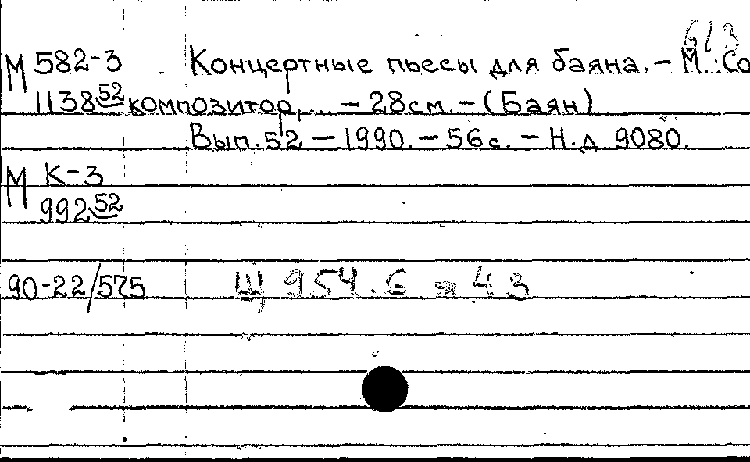 613
М 582-3 Концертные пьесы для баяна. – М.: Со
1138 52 композитор, ... – 28см. – (Баян)
Вып. 52 – 1990. – 56 с. – Н.д 9080.
М К-3
992 52
90-22/575 Щ 954.6 я 43